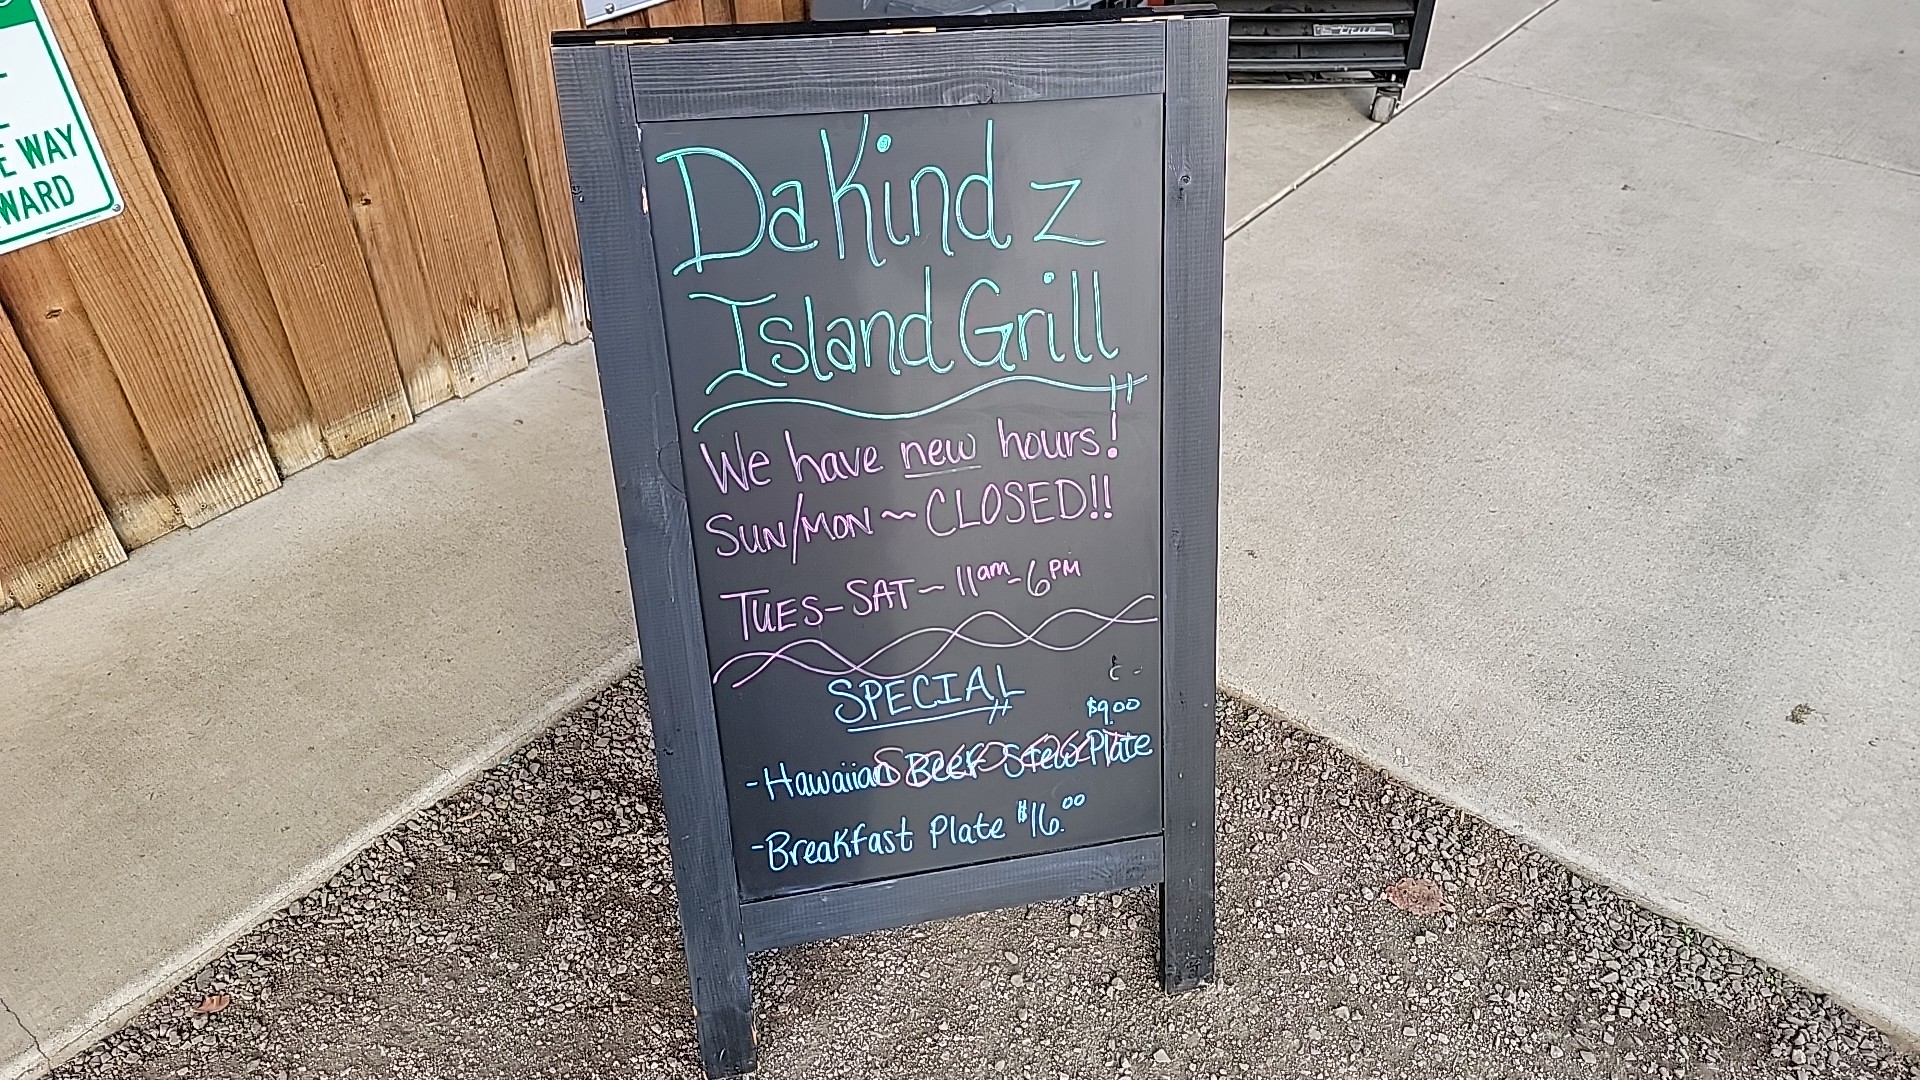 E WAY
WARD
Da Kindz
Island Grill
We have new hours!
SUN/MON ~ CLOSED!!
TUES - SAT ~ 11am - 6PM
SPECIAL
$9.00
- Hawaiian Beef Stew Plate
SOLD OUT
- Breakfast Plate $16.00